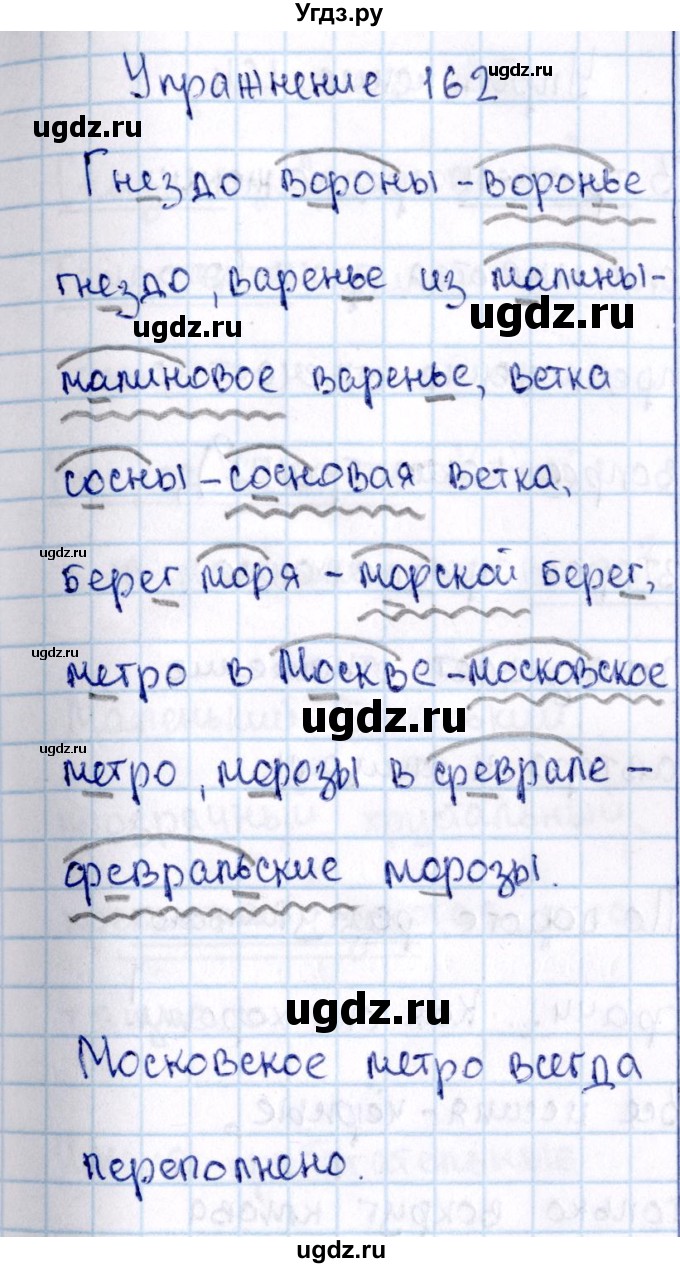 Угдз.ру
ugdz.ru
Упражнение 162
ugdz.ru
ugdz.ru
Гнездо вороны - воронье
гнездо, варенье из малины -
ugdz.ru
ugdz.ru
малиновое варенье, ветка
сосны - сосновая ветка,
ugdz.ru
ugdz.ru
берег моря - морской берег,
ugdz.ru
метро в Москве - московское
ugdz.ru
ugdz.ru
метро, морозы в феврале -
ugdz.ru
февральские морозы.
ugdz.ru
Московское метро всегда
переполнено.
ugdz.ru